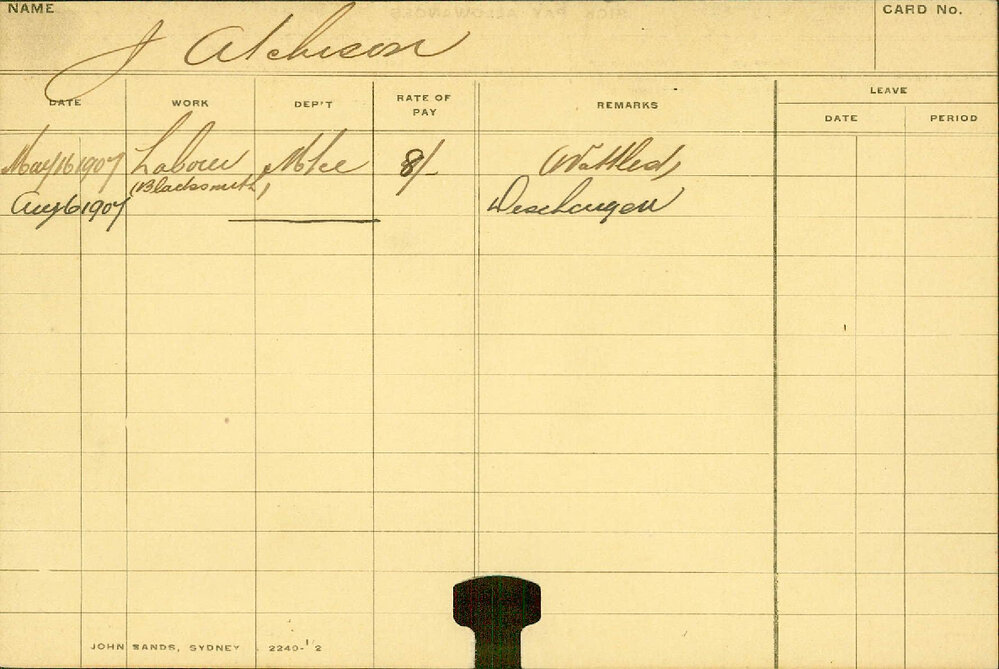 NAME
J Atchison
CARD No.
DATE WORK DEP'T RATE OF PAY REMARKS LEAVE
DATE PERIOD
May 16 1907 Labourer Mtce 8/- (Wattled)
(Blacksmith)
Aug 6 1907
JOHN SANDS, SYDNEY 2240-1/2